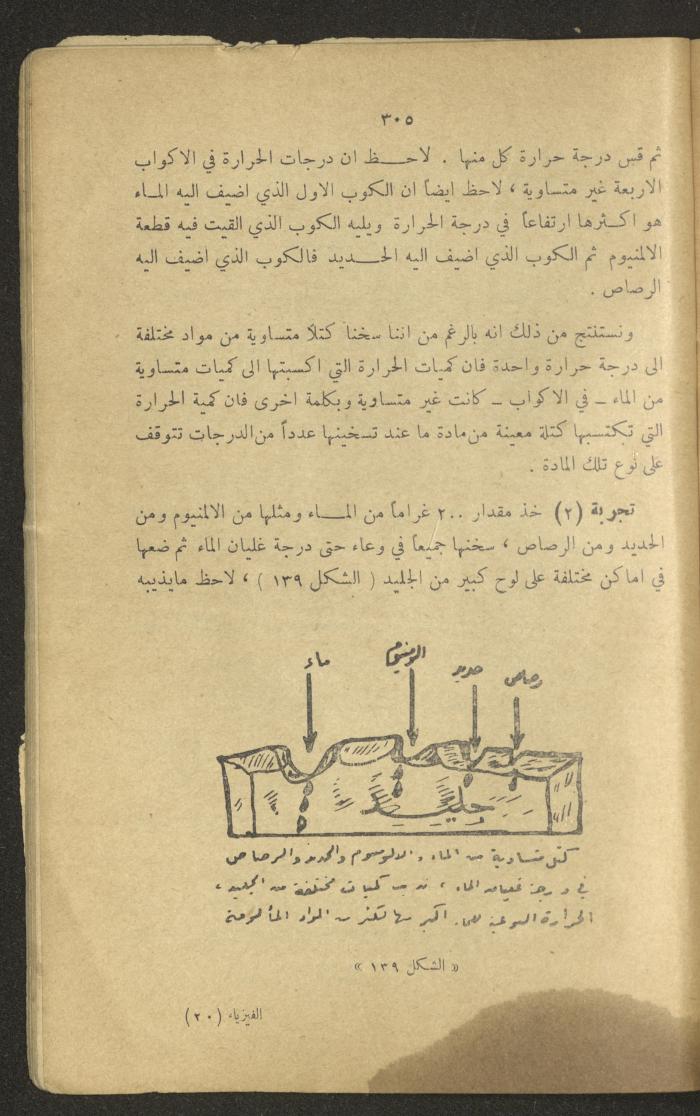 ٣٠٥
ثم قس درجة حرارة كل منها . لاحـظ ان درجات الحرارة في الاكواب
الاربعة غير متساوية ، لاحظ ايضاً ان الكوب الاول الذي اضيف اليه المـاء
هو اكـثرها ارتفاعاً في درجة الحرارة ويليه الكوب الذي القيت فيه قطعة
الالمنيوم ثم الكوب الذي اضيف اليه الحـديد فالكوب الذي اضيف اليه
الرصاص .
ونستنتج من ذلك انه بالرغم من اننا سخنا كتلاً متساوية من مواد مختلفة
الى درجة حرارة واحدة فان كميات الحرارة التي اكسبتها الى كميات متساوية
من الماء – في الاكواب – كانت غير متساوية وبكلمة اخرى فان كمية الحرارة
التي تكتسبها كتلة معينة من مادة ما عند تسخينها عدداً من الدرجات تتوقف
على نوع تلك المادة .
تجربة (٢) خذ مقدار ٢٠٠ غراماً من المـاء ومثلها من الالمنيوم ومن
الحديد ومن الرصاص ، سخنها جميعاً في وعاء حتى درجة غليان الماء ثم ضعها
في اماكن مختلفة على لوح كبير من الجليد ( الشكل ١٣٩ ) ، لاحظ مايذيبه
ماء
الومنيوم
حديد
رصاص
جليد
كتل متساوية من الماء والالومنيوم والحديد والرصاص
في درجة غليان الماء ، تذيب كميات مختلفة من الجليد ،
الحرارة النوعية للماء اكبر منها لكثير من المواد المألوفة
« الشكل ١٣٩ »
الفيزياء (٢٠)